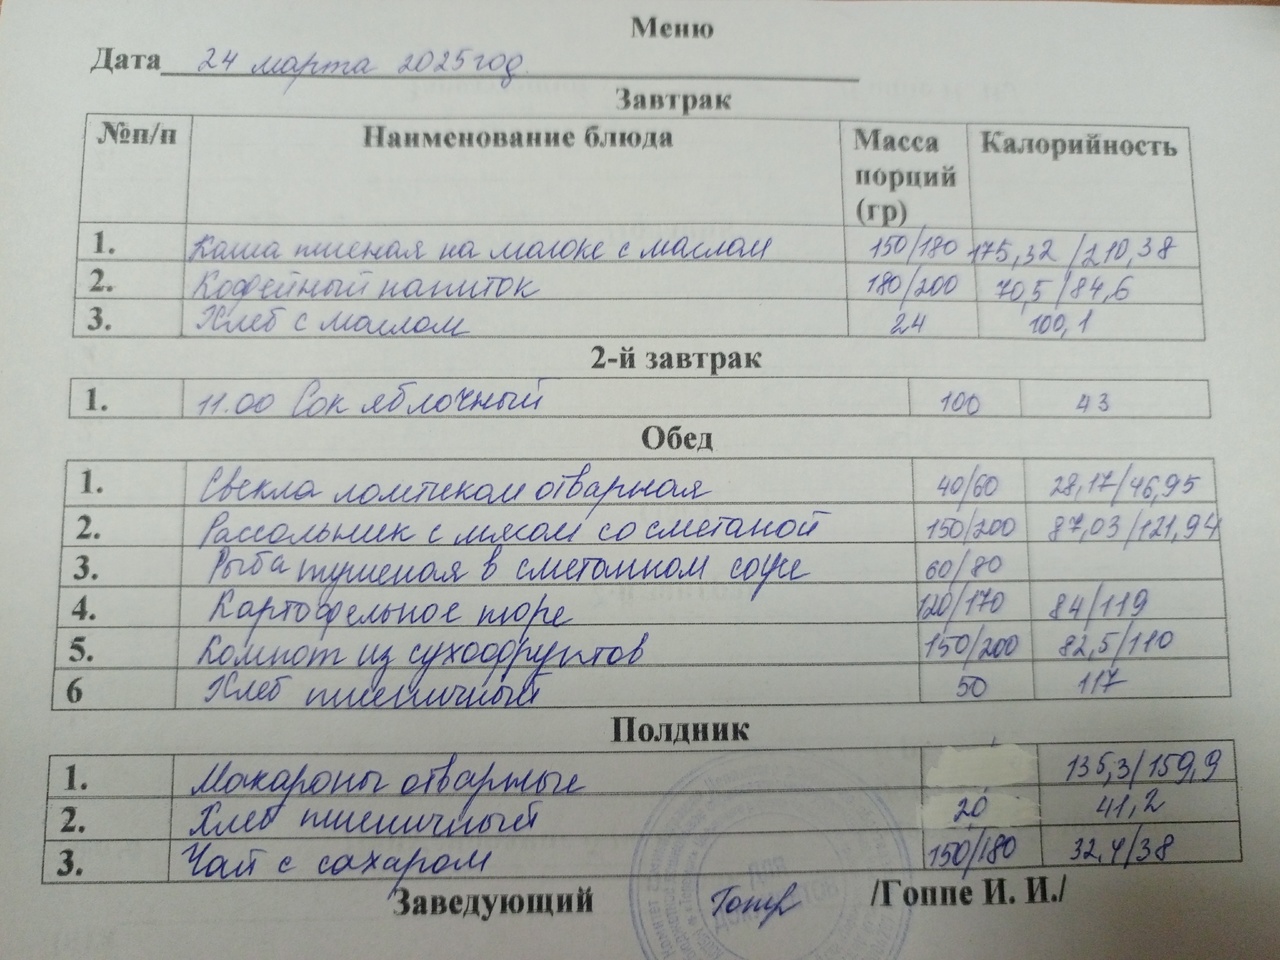 Меню
Дата 24 марта 2025 год
Завтрак
№п/п Наименование блюда Масса порций (гр) Калорийность
1. Каша пшеная на молоке с маслом 150/180 175,32/210,38
2. Кофейный напиток 180/200 70,5/84,6
3. Хлеб с маслом 24 100,1
2-й завтрак
1. 11.00 Сок яблочный 100 43
Обед
1. Свекла ломтиком отварная 40/60 28,17/46,95
2. Рассольник с мясом со сметаной 150/200 87,03/121,94
3. Рыба тушеная в сметанном соусе 60/80
4. Картофельное пюре 120/170 84/119
5. Компот из сухофруктов 150/200 82,5/110
6 Хлеб пшеничный 50 117
Полдник
1. Макароны отварные 135,3/159,9
2. Хлеб пшеничный 20 41,2
3. Чай с сахаром 150/180 32,4/38
Заведующий /Гоппе И. И./
ДЛЯ
ДОКУМЕНТОВ